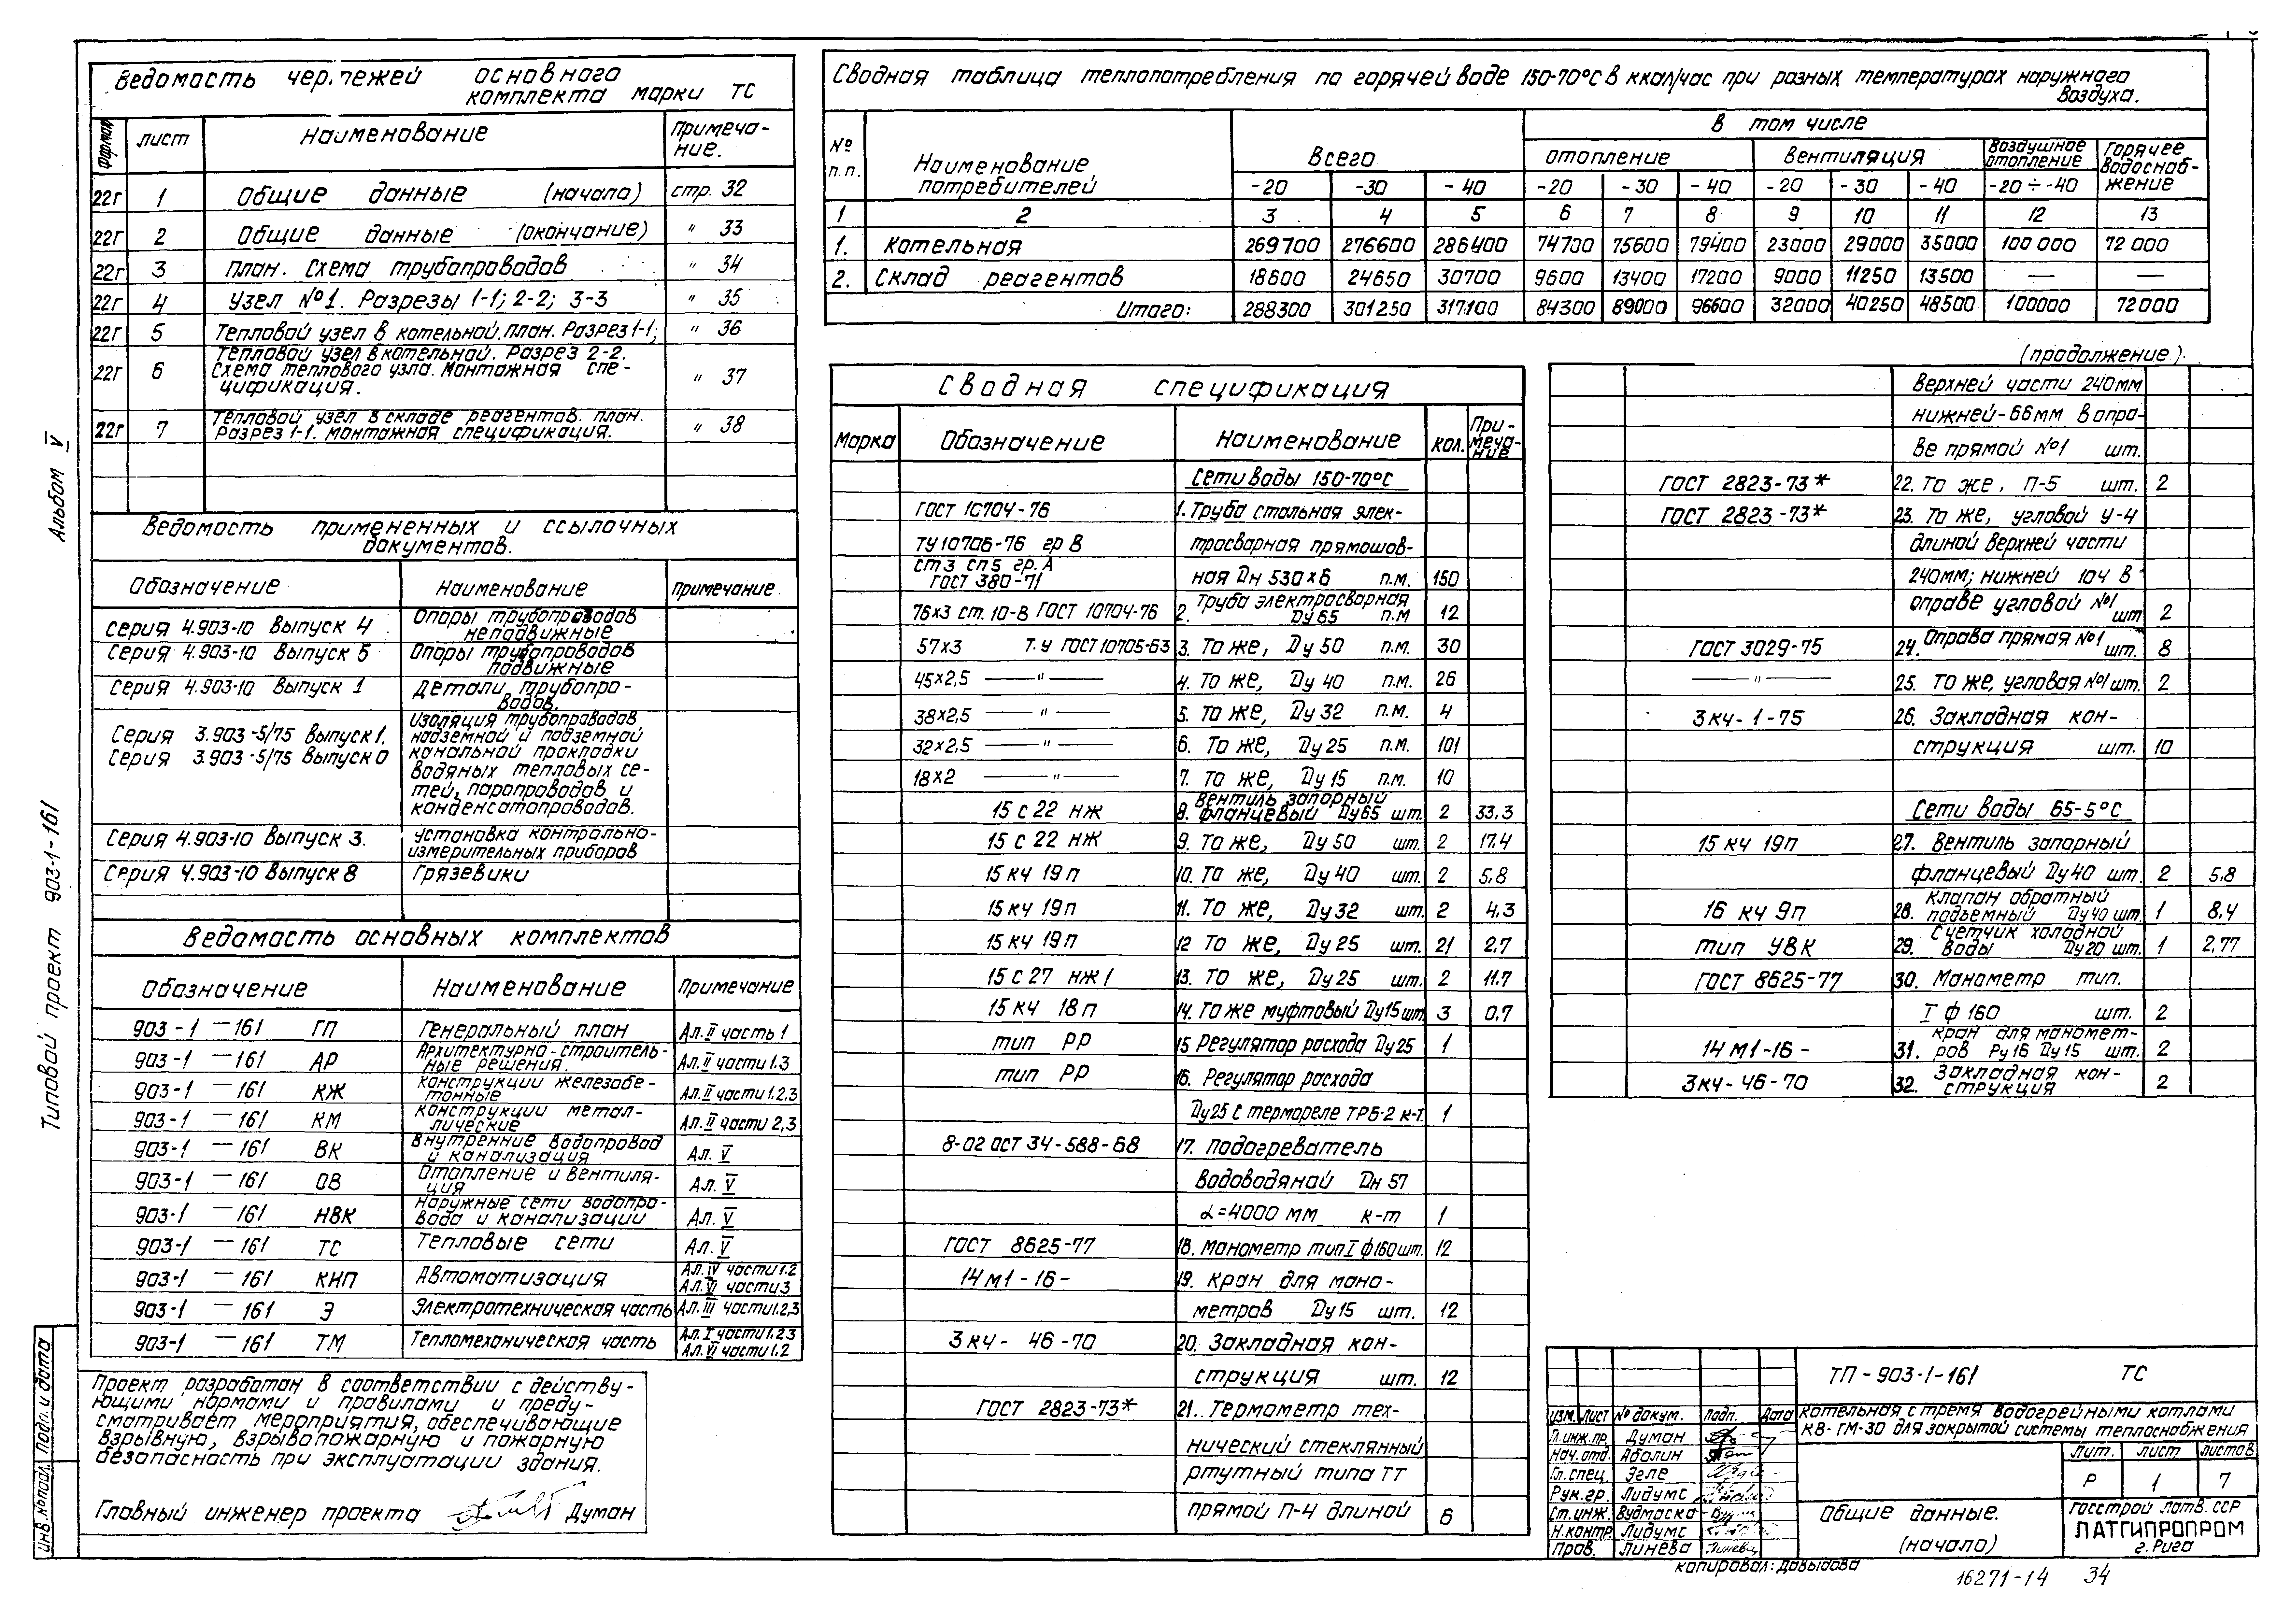 Ведомость чертежей основного
комплекта марки ТС
Формат лист Наименование Примеча-
ние.
22г 1 Общие данные (начало) стр. 32
22г 2 Общие данные (окончание) " 33
22г 3 План. Схема трубопроводов " 34
22г 4 Узел №1. Разрезы 1-1; 2-2; 3-3 " 35
22г 5 Тепловой узел в котельной. план. Разрез 1-1; " 36
22г 6 Тепловой узел в котельной. Разрез 2-2.
Схема теплового узла. Монтажная спе-
цификация. " 37
22г 7 Тепловой узел в складе реагентов. план.
Разрез 1-1. Монтажная спецификация. " 38
Ведомость примененных и ссылочных
документов.
Обозначение Наименование Примечание
Серия 4.903-10 Выпуск 4 Опоры трубопроводов
неподвижные
Серия 4.903-10 Выпуск 5 Опоры трубопроводов
подвижные
Серия 4.903-10 Выпуск 1 Детали трубопро-
водов.
Серия 3.903-5/75 Выпуск 1.
Серия 3.903-5/75 Выпуск 0
Изоляция трубопроводов
надземной и подземной
канальной прокладки
водяных тепловых се-
тей, паропроводов и
конденсатопроводов.
Серия 4.903-10 Выпуск 3. Установка контрольно-
измерительных приборов
Серия 4.903-10 Выпуск 8 Грязевики
Ведомость основных комплектов
Обозначение Наименование Примечание
903-1 — 161 ГП Генеральный план Ал. II часть 1
903-1 — 161 АР Архитектурно-строитель-
ные решения. Ал. II части 1.3
903-1 — 161 КЖ Конструкции железобе-
тонные Ал. II части 1.2,3
903-1 — 161 КМ Конструкции метал-
лические Ал. II части 2,3
903-1 — 161 ВК Внутренние водопровод
и канализация Ал. V
903-1 — 161 ОВ Отопление и вентиля-
ция Ал. V
903-1 — 161 НВК Наружные сети водопро-
вода и канализации Ал. V
903-1 — 161 ТС Тепловые сети Ал. V
903-1 — 161 КИП Автоматизация Ал. IV части 1.2
Ал. VI части 3
903-1 — 161 Э Электротехническая часть Ал. III части 1.2,3
903-1 — 161 ТМ Тепломеханическая часть Ал. I части 1.2.3
Ал. VI части 1,2
Проект разработан в соответствии с действу-
ющими нормами и правилами и преду-
сматривает мероприятия, обеспечивающие
взрывную, взрывопожарную и пожарную
безопасность при эксплуатации здания.
Главный инженер проекта Думан
Альбом V
Типовой проект 903-1-161
Инв. № подл. Подп. и дата
Сводная таблица теплопотребления по горячей воде 150-70°С в ккал/час при разных температурах наружного
воздуха.
№ п.п. Наименование потребителей Всего В том числе
отопление Вентиляция Воздушное отопление Горячее водоснаб-
жение
-20 -30 -40 -20 -30 -40 -20 -30 -40 -20 ÷ -40
1 2 3 4 5 6 7 8 9 10 11 12 13
1. Котельная 269700 276600 286400 74700 75600 79400 23000 29000 35000 100 000 72 000
2. Склад реагентов 18600 24650 30700 9600 13400 17200 9000 11250 13500 — —
Итого: 288300 301250 317100 84300 89000 96600 32000 40250 48500 100000 72000
Сводная спецификация
Марка Обозначение Наименование кол. При-
меча-
ние
Сети воды 150-70°С
ГОСТ 10704-76 1. Труба стальная элек-
ТУ 10706-76 гр В тросварная прямошов-
ст3 сп5 гр. А
ГОСТ 380-71 ная Дн 530×6 п.м. 150
76×3 ст. 10-В ГОСТ 10704-76 2. Труба электросварная
Ду 65 п.м 12
57×3 Т.У ГОСТ 10705-63 3. То же, Ду 50 п.м. 30
45×2,5 — " — 4. То же, Ду 40 п.м. 26
38×2,5 — " — 5. То же, Ду 32 п.м. 4
32×2,5 — " — 6. То же, Ду 25 п.м. 101
18×2 — " — 7. То же, Ду 15 п.м. 10
15 с 22 нж 8. Вентиль запорный
фланцевый Ду 65 шт. 2 33,3
15 с 22 нж 9. То же, Ду 50 шт. 2 17.4
15 кч 19 п 10. То же, Ду 40 шт. 2 5,8
15 кч 19 п 11. То же, Ду 32 шт. 2 4,3
15 кч 19 п 12 То же, Ду 25 шт. 21 2,7
15 с 27 нж 1 13. То же, Ду 25 шт. 2 11.7
15 кч 18 п 14. То же муфтовый Ду 15 шт. 3 0,7
тип РР 15 Регулятор расхода Ду 25 1
тип РР 16. Регулятор расхода
Ду 25 с термореле ТРБ-2 к-т. 1
8-02 ОСТ 34-588-68 17. Подогреватель
водоводяной Дн 57
ℒ=4000 мм к-т 1
ГОСТ 8625-77 18. Манометр тип I ф 160 шт. 12
14 М1-16- 19. Кран для мано-
метров Ду 15 шт. 12
3 кч- 46-70 20. Закладная кон-
струкция шт. 12
ГОСТ 2823-73* 21. Термометр тех-
нический стеклянный
ртутный типа ТТ
прямой П-4 длиной 6
(продолжение).
верхней части 240мм
нижней-66мм в опра-
ве прямой №1 шт.
ГОСТ 2823-73* 22. То же, П-5 шт. 2
ГОСТ 2823-73* 23. То же, угловой У-4
длиной верхней части
240мм; нижней 104 в
оправе угловой №1
шт 2
ГОСТ 3029-75 24. Оправа прямая №1
шт. 8
— " — 25. То же, угловая №1 шт. 2
3 кч-1-75 26. Закладная кон-
струкция шт. 10
Сети воды 65-5°С
15 кч 19п 27. Вентиль запорный
фланцевый Ду 40 шт. 2 5,8
16 кч 9п 28. Клапан обратный
подъемный Ду 40 шт. 1 8,4
тип УВК 29. Счетчик холодной
воды Ду 20 шт. 1 2,77
ГОСТ 8625-77 30. Манометр тип.
I ф 160 шт. 2
14 М1-16- 31. Кран для маномет-
ров Ру 16 Ду 15 шт. 2
3 кч-46-70 32. Закладная кон-
струкция 2
ТП-903-1-161 ТС
Изм. Лист № докум. Подп. Дата
Гл.инж.пр. Думан
Нач.отд. Аболин
Гл.спец. Эгле
Рук.гр. Лидумс
Ст.инж. Вудмаска
Н.контр. Лидумс
Пров. Линева
Котельная с тремя водогрейными котлами
КВ-ГМ-30 для закрытой системы теплоснабжения
Лит. лист листов
Р 1 7
Общие данные.
(начало)
Госстрой Латв. ССР
ЛАТГИПРОПРОМ
г. Рига
копировал: Давыдова
16271-14 34